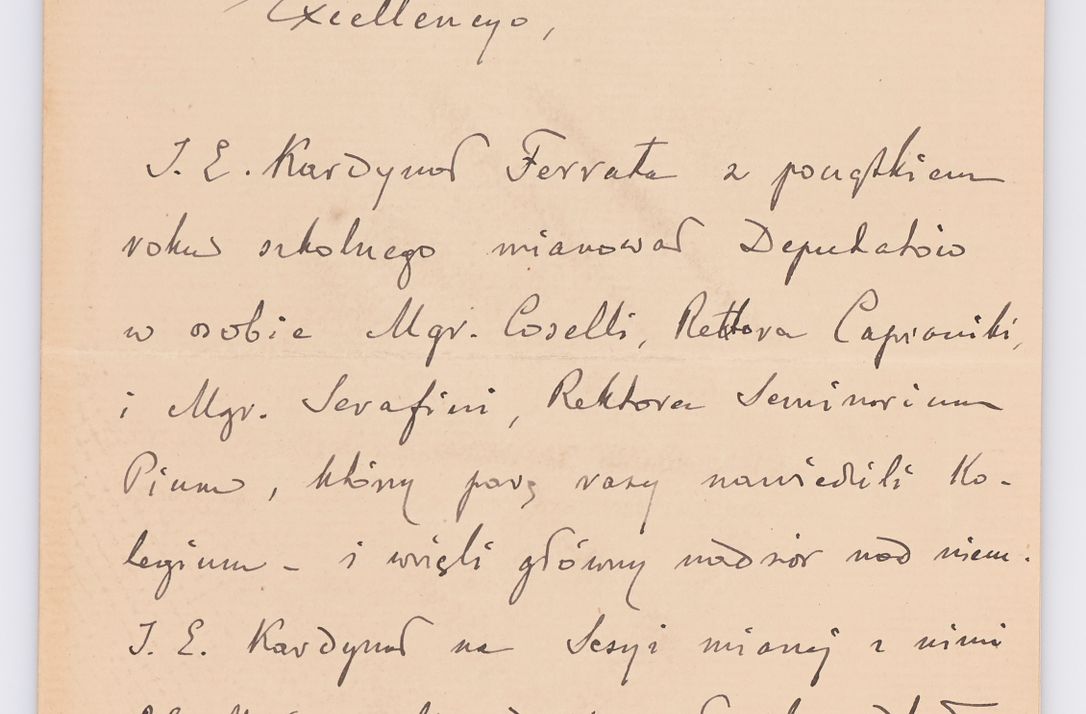 Excellencyo,
J. E. Kardynał Ferrata z początkiem
roku szkolnego mianował Deputatów
w osobie Mgr. Coselli, Rektora Capraniki,
i Mgr. Serafini, Rektora Seminarium
Pium, którzy parę razy nawiedzili Ko-
legium – i wzięli główny nadzór nad niem.
J. E. Kardynał na Sesyi mianej z nimi